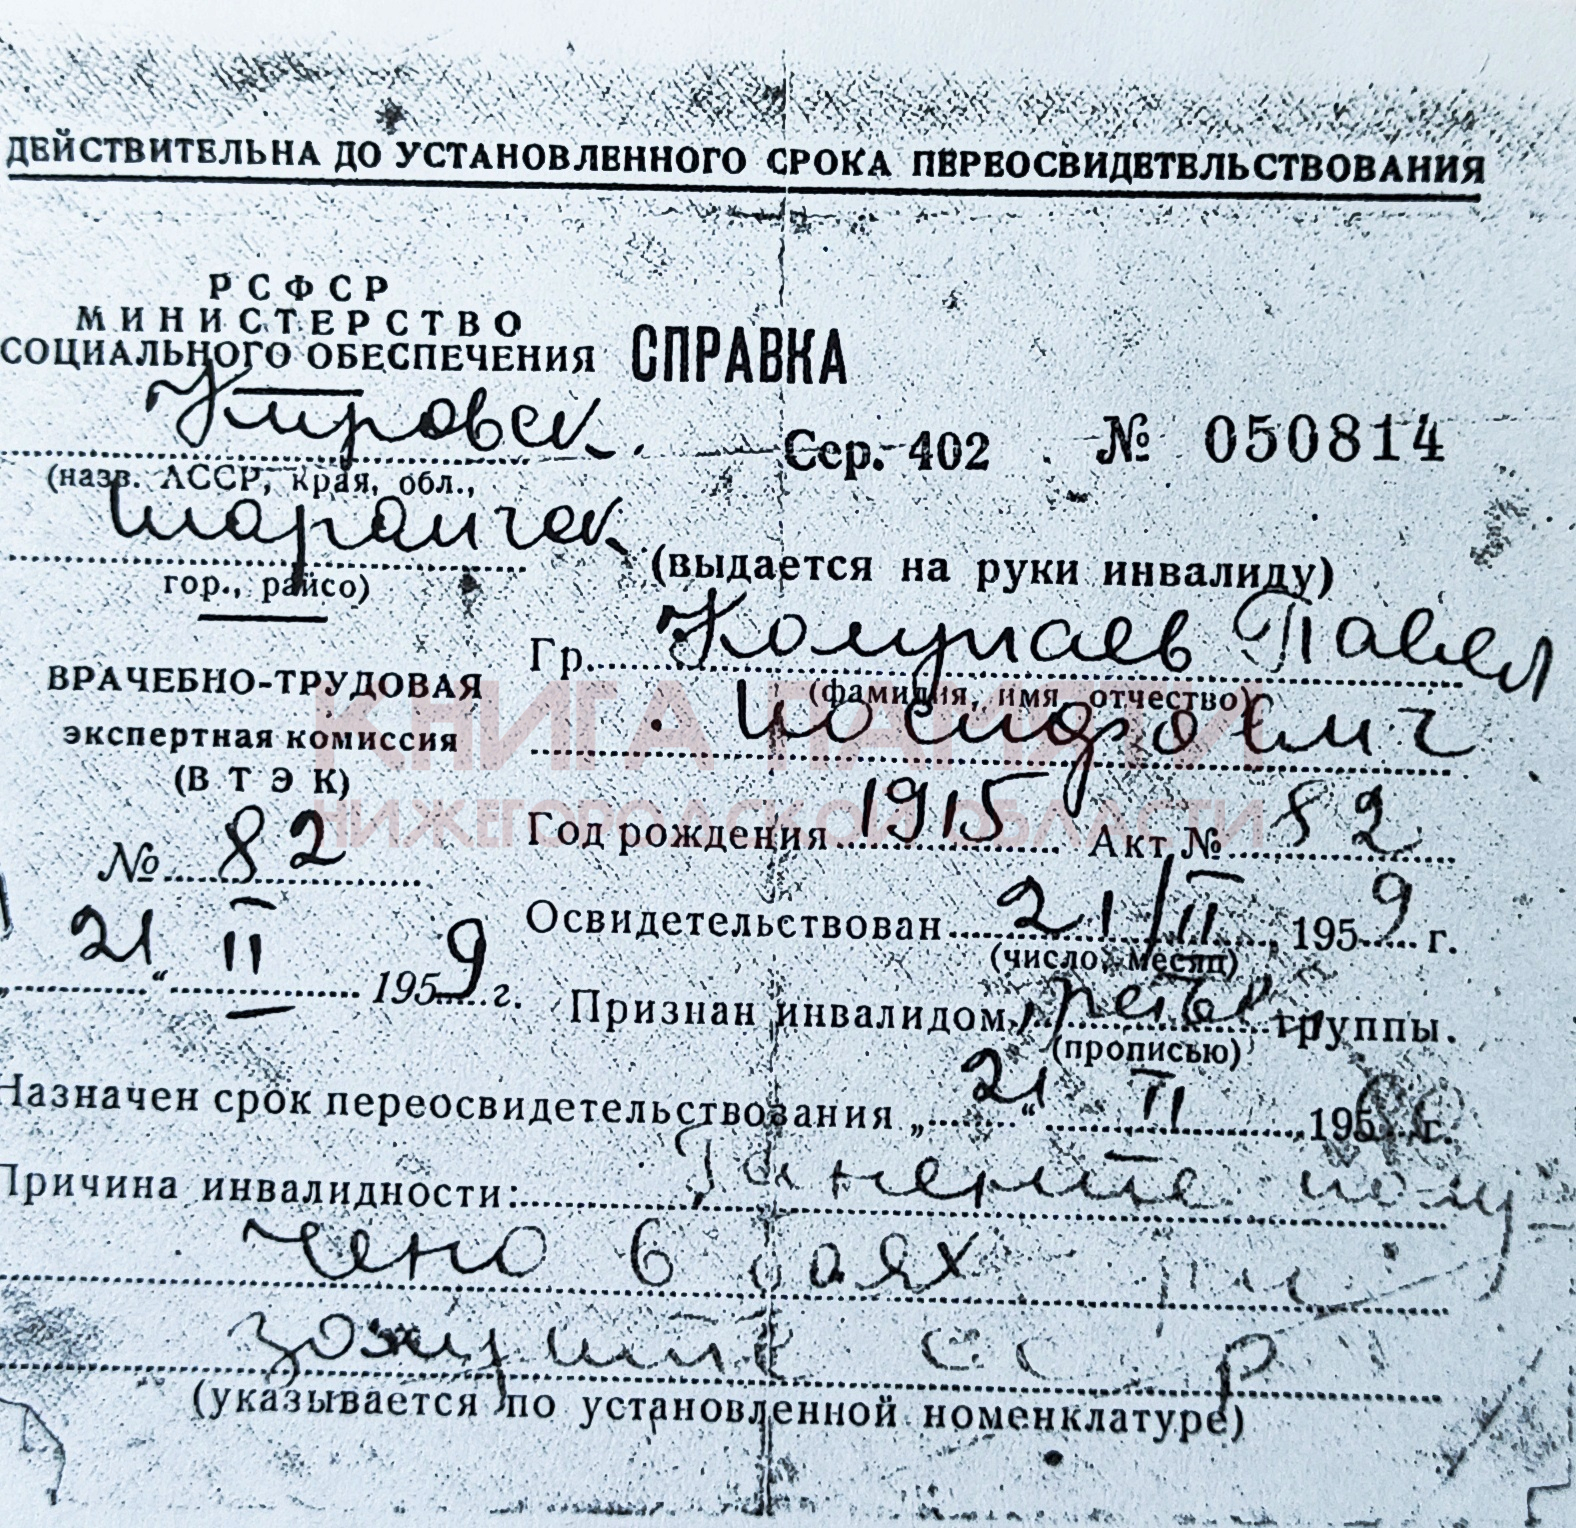 ДЕЙСТВИТЕЛЬНА ДО УСТАНОВЛЕННОГО СРОКА ПЕРЕОСВИДЕТЕЛЬСТВОВАНИЯ
РСФСР
МИНИСТЕРСТВО
СОЦИАЛЬНОГО ОБЕСПЕЧЕНИЯ
СПРАВКА
Кировск.
(назв. АССР, края, обл.,
Сер. 402 № 050814
Шарангск
гор., райсо)
(выдается на руки инвалиду)
Гр. Колупаев Павел
(фамилия, имя, отчество)
Иосифович
ВРАЧЕБНО-ТРУДОВАЯ
экспертная комиссия
(ВТЭК)
КНИГА ПАМЯТИ
НИЖЕГОРОДСКОЙ ОБЛАСТИ
№ 82
Год рождения 1915 Акт № 82
„21“ II 1959 г.
Освидетельствован 21/II 1959 г.
(число, месяц)
Признан инвалидом третьей группы.
(прописью)
Назначен срок переосвидетельствования „21“ II 195 г.
Причина инвалидности: Ранение полу
чено в боях при
защите ССР
(указывается по установленной номенклатуре)